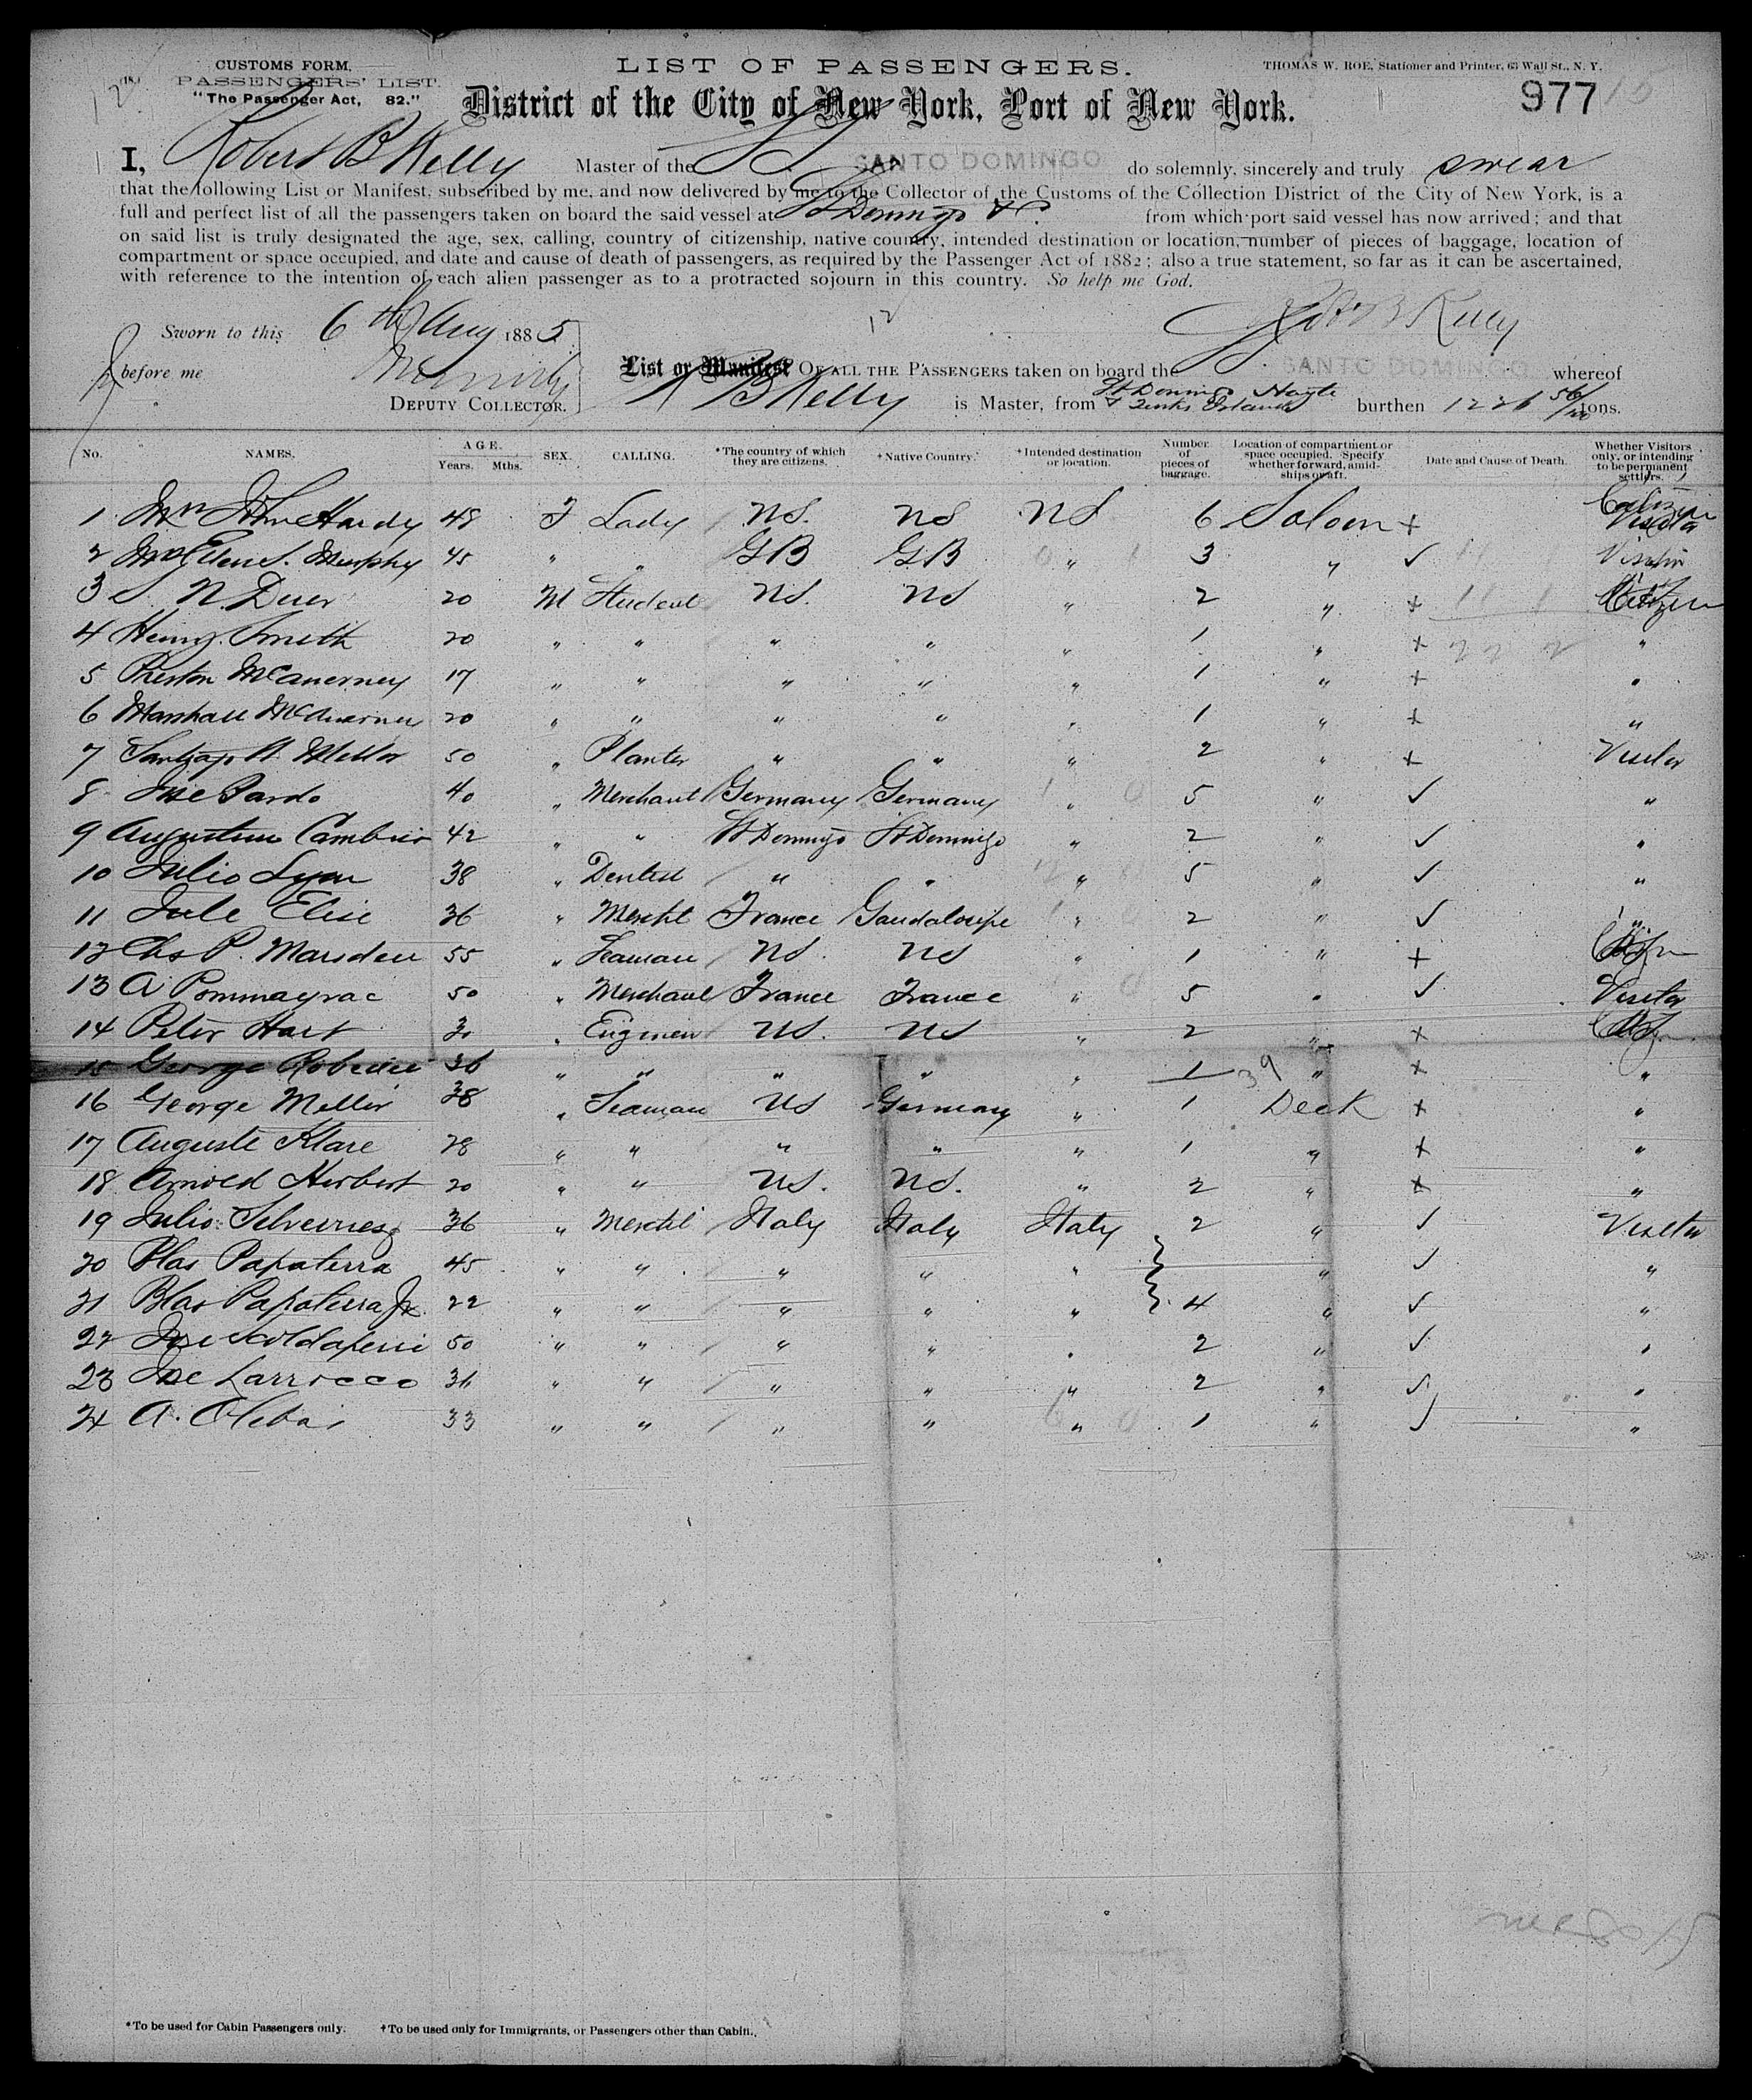 CUSTOMS FORM.
PASSENGERS' LIST.
"The Passenger Act, 82."
LIST OF PASSENGERS.
THOMAS W. ROE, Stationer and Printer, 63 Wall St., N. Y.
977
District of the City of New York, Port of New York.
I, Robert B Kelly Master of the SS. SANTO DOMINGO do solemnly, sincerely and truly swear
that the following List or Manifest, subscribed by me, and now delivered by me to the Collector of the Customs of the Collection District of the City of New York, is a
full and perfect list of all the passengers taken on board the said vessel at St Domingo &c. from which port said vessel has now arrived; and that
on said list is truly designated the age, sex, calling, country of citizenship, native country, intended destination or location, number of pieces of baggage, location of
compartment or space occupied, and date and cause of death of passengers, as required by the Passenger Act of 1882; also a true statement, so far as it can be ascertained,
with reference to the intention of each alien passenger as to a protracted sojourn in this country. So help me God.
Robt B Kelly
Sworn to this 6th Aug 1885
before me
DEPUTY COLLECTOR.
List or Manifest OF ALL THE PASSENGERS taken on board the SS. SANTO DOMINGO whereof
R B Kelly is Master, from St Domingo Hayti & Turks Islands burthen 1226 56/100 tons.
No. NAMES. AGE. Years. Mths. SEX. CALLING. *The country of which they are citizens. †Native Country. †Intended destination or location. Number of pieces of baggage. Location of compartment or space occupied. Specify whether forward, amidships or aft. Date and Cause of Death. Whether Visitors only, or intending to be permanent settlers.
1 Mrs John Hardy 48 F Lady US. US US 6 Saloon x Citizen
2 Mrs Ellen S. Murphy 45 " " GB GB " 3 " ✓ Visitor
3 S. N. Duer 20 M Student US. US " 2 " x Citizen
4 Henry Smith 20 " " " " " 1 " x "
5 Preston McAnerney 17 " " " " " 1 " x "
6 Marshall McAnerney 20 " " " " " 1 " x "
7 Santiago W. Mellor 50 " Planter " " " 2 " x Visitor
8 Jose Pardo 40 " Merchant Germany Germany " 5 " ✓ "
9 Augustin Cambrier 42 " " St Domingo St Domingo " 2 " ✓ "
10 Julio Lyon 38 " Dentist " " " 5 " ✓ "
11 Jule Elise 36 " Mercht France Gaudaloupe " 2 " ✓ "
12 Chs P. Marsden 55 " Seaman US. US " 1 " x
13 A Pommayrac 50 " Merchant France France " 5 " ✓ Visitor
14 Peter Hart 30 " Engineer US. US " 2 " x
15 George 36 " " " " " 1 " x "
16 George Meller 38 " Seaman US Germany " 1 Deck x "
17 Auguste Klare 28 " " " " " 1 " x "
18 Arnold Herbert 20 " " US. US. " 2 " x "
19 Julio 36 " Mercht Italy Italy Italy 2 " ✓ Visitor
20 Blas Papaterra 45 " " " " " " ✓ "
21 Blas Papaterra Jr. 22 " " " " " 4 " ✓ "
22 Jose 50 " " " " " 2 " ✓ "
23 Jose Larrocco 31 " " " " " 2 " ✓ "
24 A. 33 " " " " " 1 " ✓ "
*To be used for Cabin Passengers only. †To be used only for Immigrants, or Passengers other than Cabin.